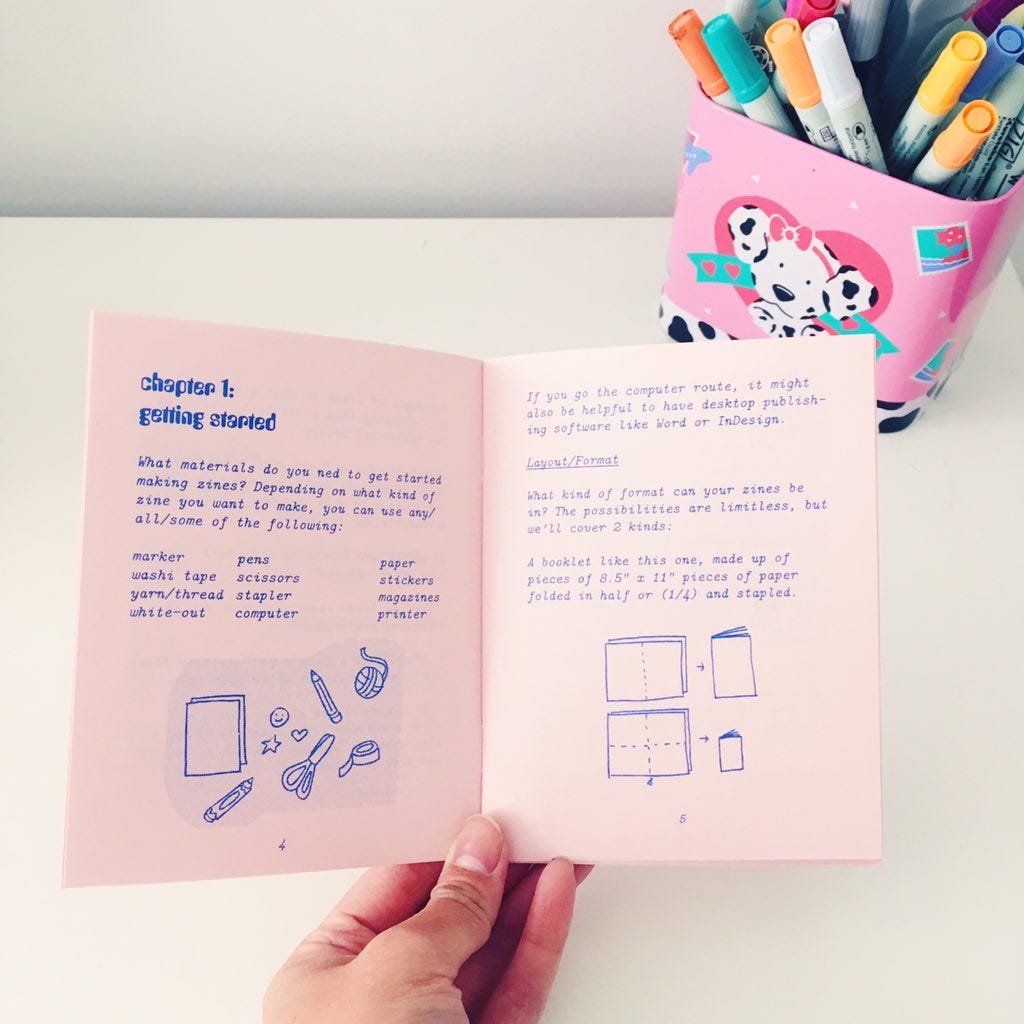 chapter 1:
getting started
What materials do you ned to get started
making zines? Depending on what kind of
zine you want to make, you can use any/
all/some of the following:
marker pens paper
washi tape scissors stickers
yarn/thread stapler magazines
white-out computer printer
4
If you go the computer route, it might
also be helpful to have desktop publish-
ing software like Word or InDesign.
Layout/Format
What kind of format can your zines be
in? The possibilities are limitless, but
we'll cover 2 kinds:
A booklet like this one, made up of
pieces of 8.5" x 11" pieces of paper
folded in half or (1/4) and stapled.
5